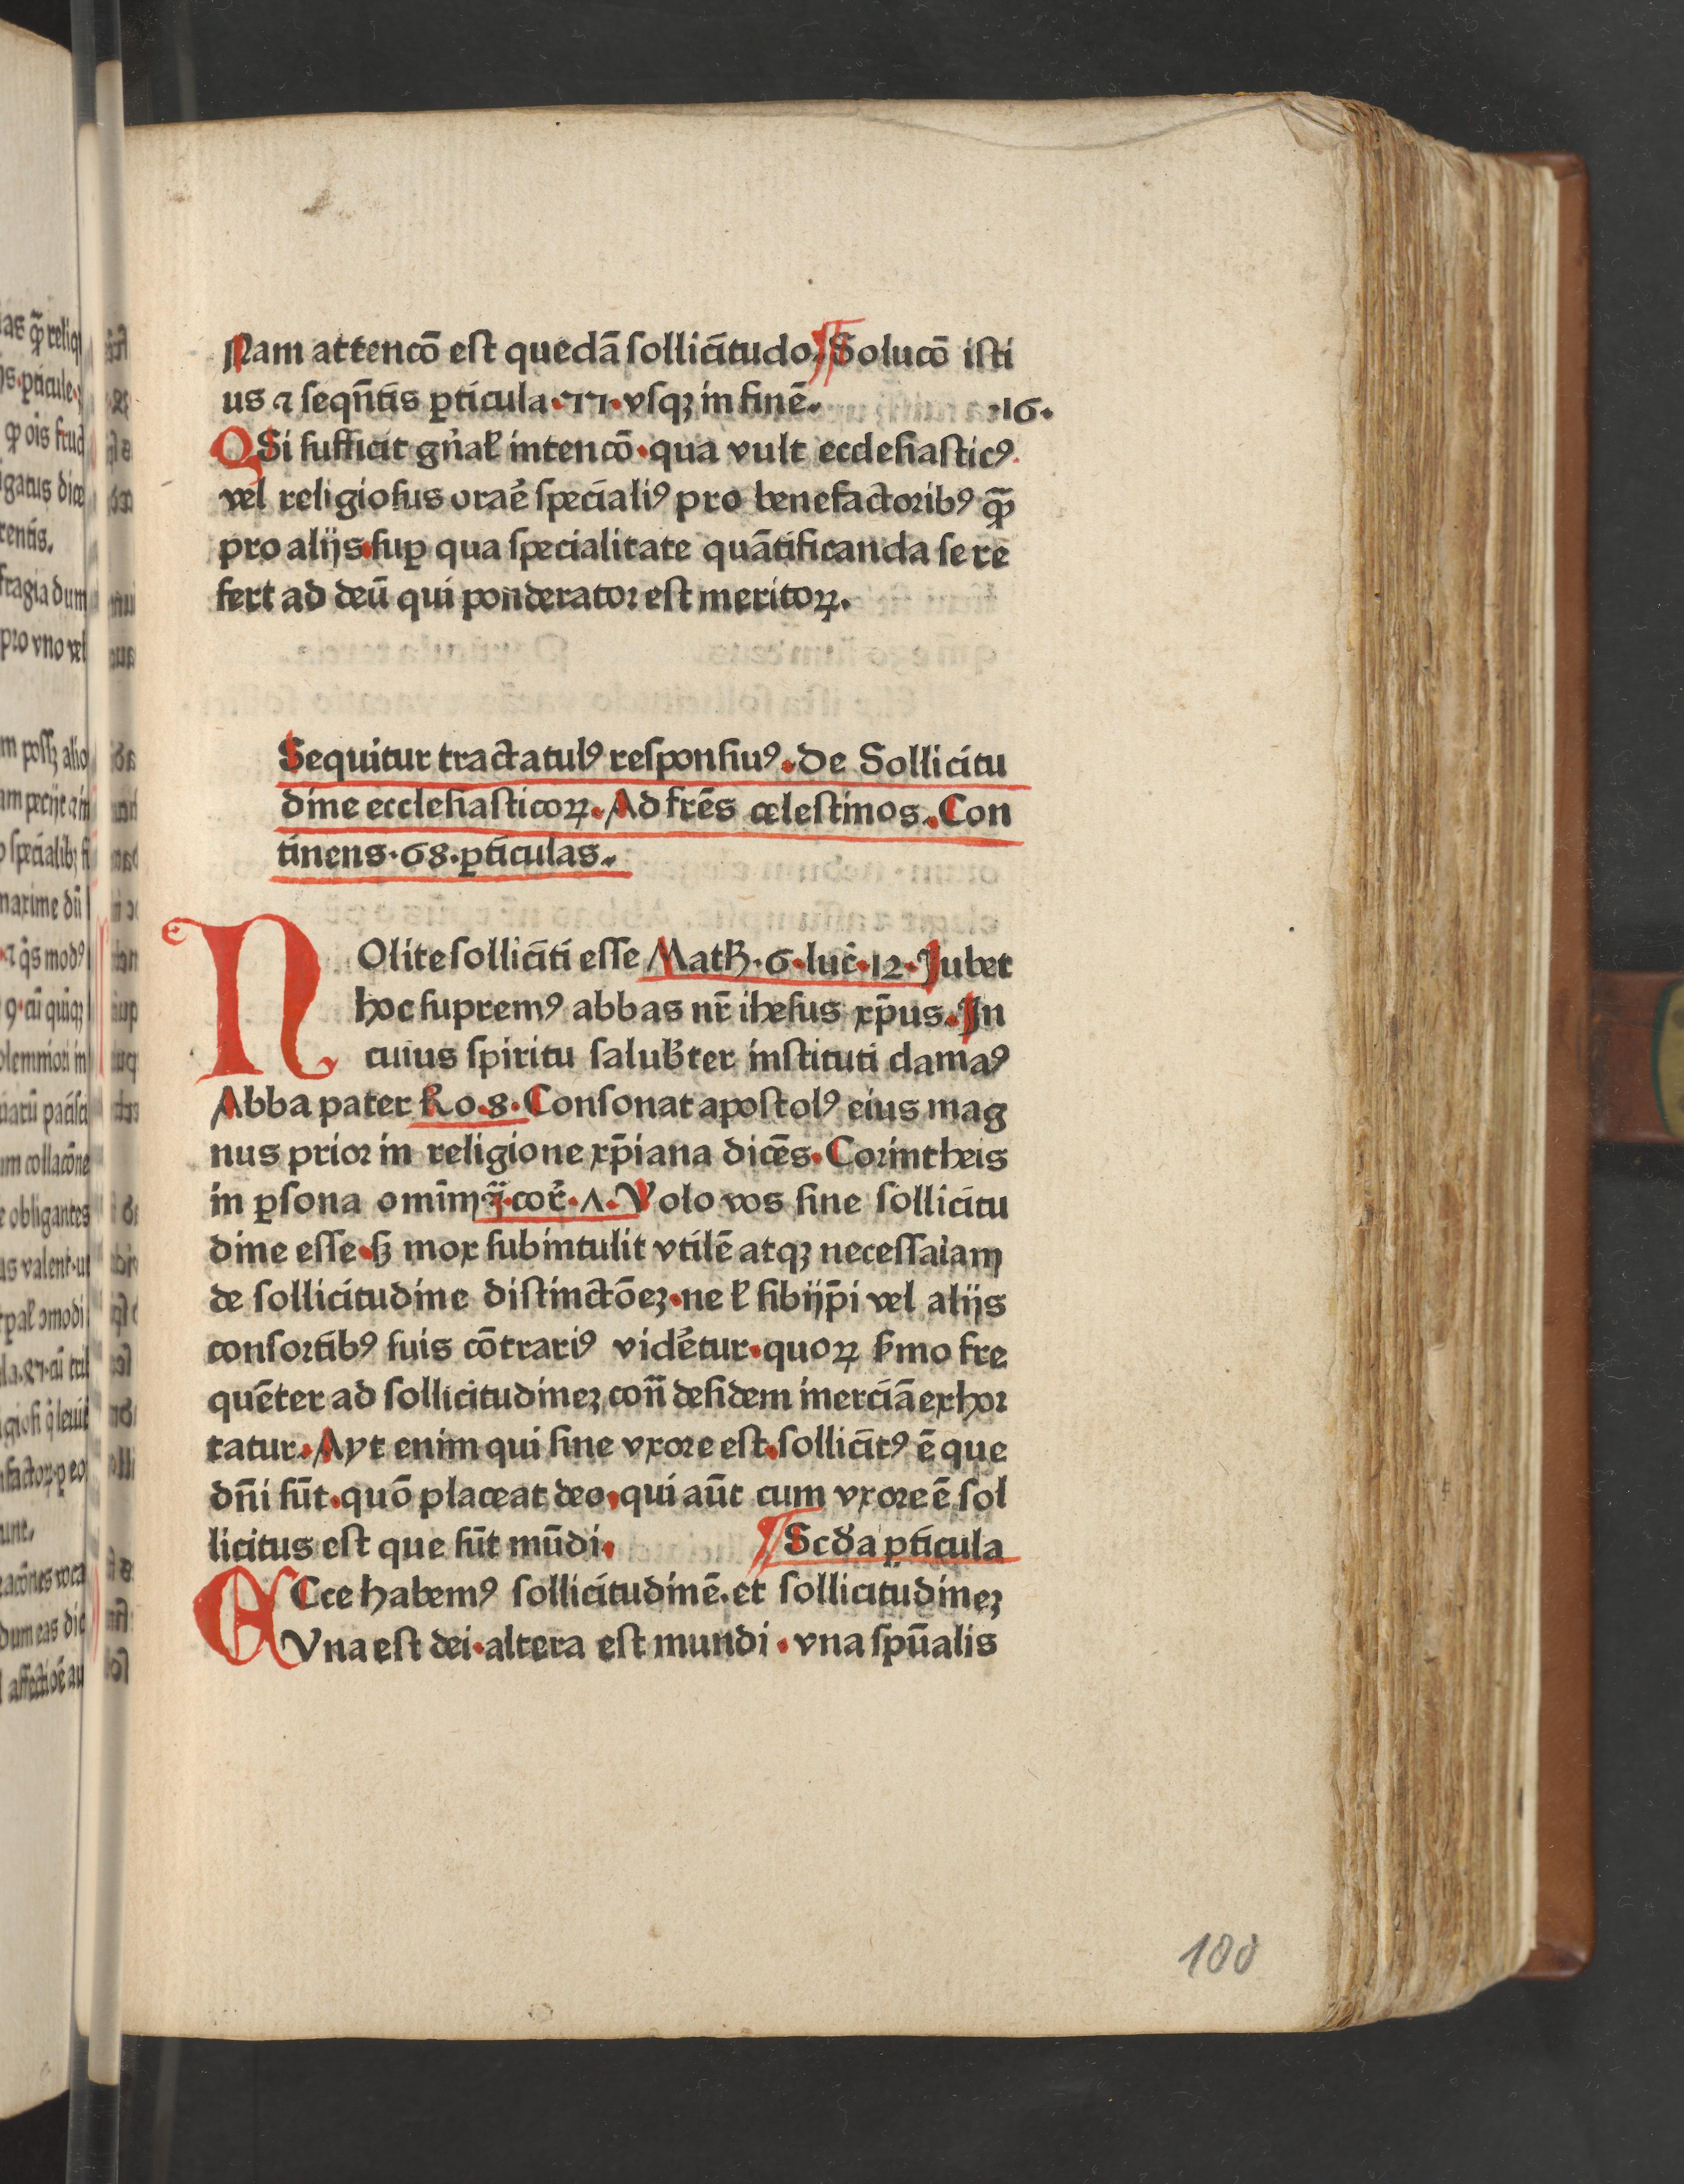 Nam attencō eſt quedā ſollicitudo. Solucō iſti
us ⁊ ſeqn̄tis ꝑticula·77·vſqꝫ in finē.
·16·
Q Si ſufficit gn̄ał intencō·qua vult eccleſiaſticꝰ
vel religioſus orae᷑ ſpecialiꝰ pro benefactoribꝰ qꝫ̄
pro aliȷs·ſuꝑ qua ſpecialitate quātificanda ſe re
fert ad deū qui ponderator eſt meritoꝝ.
Sequitur tractatulꝰ reſponſiuꝰ. de Sollicitu
dine eccleſiaſticoꝝ. Ad frēs celeſtinos. Con
tinens·68·ꝑticulas.
NOlite ſolliciti eſſe Math̄·6·luc̄·12·Jubet
hoc ſupremꝰ abbas nr̄ iheſus xp̄us. In
cuius ſpiritu ſalub̄ter inſtituti clamaꝰ
Abba pater Ro.8. Conſonat apoſtolꝰ eius mag
nus prior in religione xp̄iana dicēs. Corintheis
in ꝑſona omnīm ꝗ·cor̄·Λ·Volo vos ſine ſollicitu
dine eſſe·ſꝫ mox ſubintulit vtilē atqꝫ neceſſaiam
de ſollicitudine diſtinctōeꝫ·ne ł ſibiip̄i vel aliȷs
conſortibꝰ ſuis cōtrariꝰ vide᷑tur·quoꝝ pͥmo fre
quēter ad ſollicitudineꝫ con̄ deſidem inerciā exhor
tatur. Ayt enim qui ſine vxore eſt·ſollicitꝰ ē que
dn̄i ſūt·quō placeat deo·qui aūt cum vxore ē ſol
licitus eſt que ſūt mūdi.
Scd̄a ꝑticula
ECce habemꝰ ſollicitudinē·et ſollicitudineꝫ
Vna eſt dei·altera eſt mundi·vna ſpūalis
100